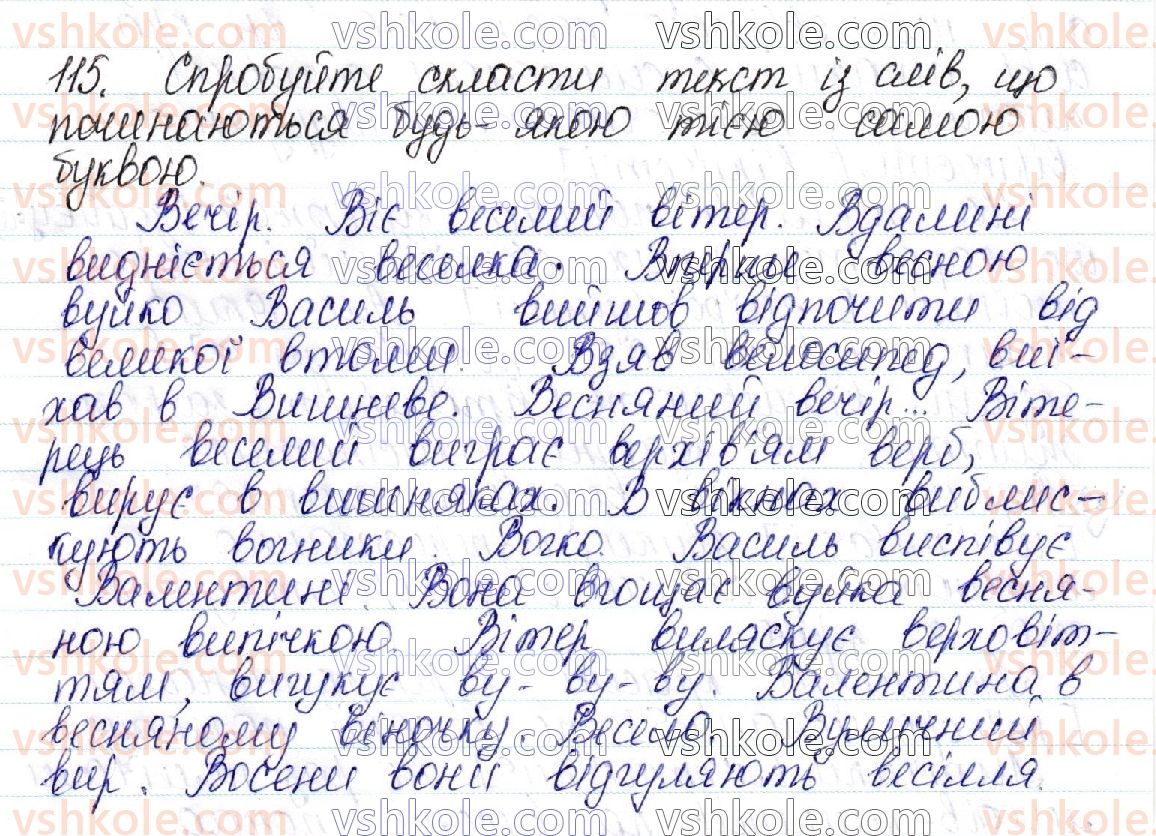 115. Спробуйте скласти текст із слів, що
починаються будь-якою тією самою
буквою.
Вечір. Віє веселий вітер. Вдалині
видніється веселка. Вперше весною
вуйко Василь вийшов відпочити від
великої втоми. Взяв велосипед, виї-
хав в Вишневе. Весняний вечір... Віте-
рець веселий виграє верхів'ям верб,
вирує в вишняках. В вікнах виблис-
кують вогники. Вогко. Василь виспівує
Валентині. Вона вгощає вуйка весня-
ною випічкою. Вітер виляскує верховіт-
тям, вигукує ву-ву-ву. Валентина в
весняному віночку. Весело. Вуличний
вир. Восени вони відгуляють весілля.